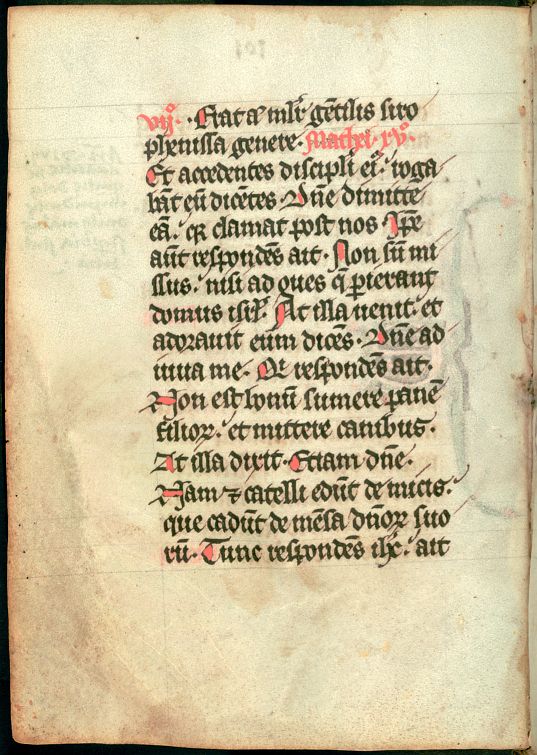 vijº. Erat aū mlr̄ gētilis siro
phenissa genere. Mathei. xvº.
Et accedentes discipli eiꝰ. roga
bāt eū dicētes. Dn̄e dimitte
eā. qꝛ clamat post nos. Ip̄e
aūt respondēs ait. Non sū mi
ssus. nisi ad oues q̄ ꝑierant
domus isrl̄. At illa uenit. et
adorauit eum dicēs. Dn̄e ad
iuua me. Qi respondēs ait.
Non est bonū sumere panē
filioꝝ. et mittere canibus.
At illa dixit. Etiam dn̄e.
Nam ⁊ catelli edūt de micis.
que cadūt de mēsa dn̄oꝝ suo
rū. Tunc respondēs ihc̄. ait